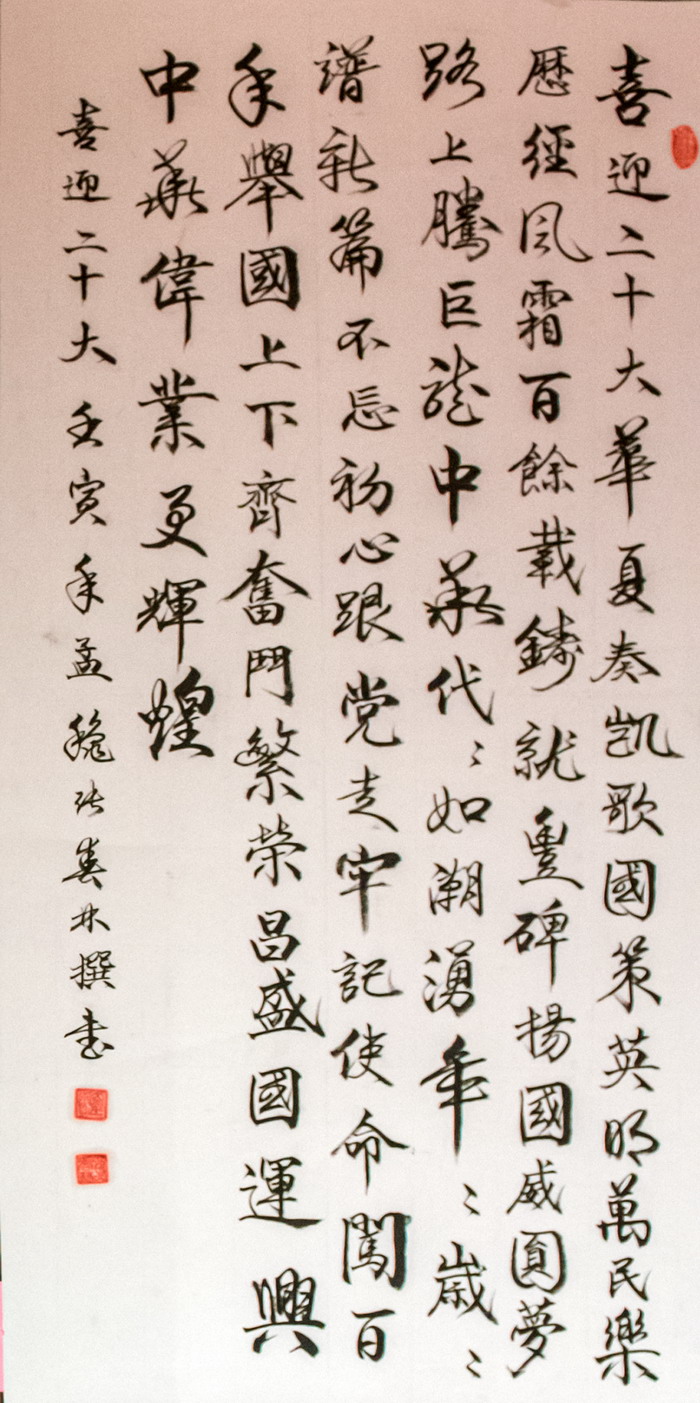 喜迎二十大華夏奏凱歌國策英明萬民樂
歷經風霜百餘載鑄就豐碑揚國威圓夢
路上騰巨龍中華代〻如潮湧年〻歲〻
譜新篇不忘初心跟党走牢記使命闖百
年舉國上下齊奮鬥繁榮昌盛國運興
中華偉業更輝煌
喜迎二十大壬寅年孟穐張春林撰書